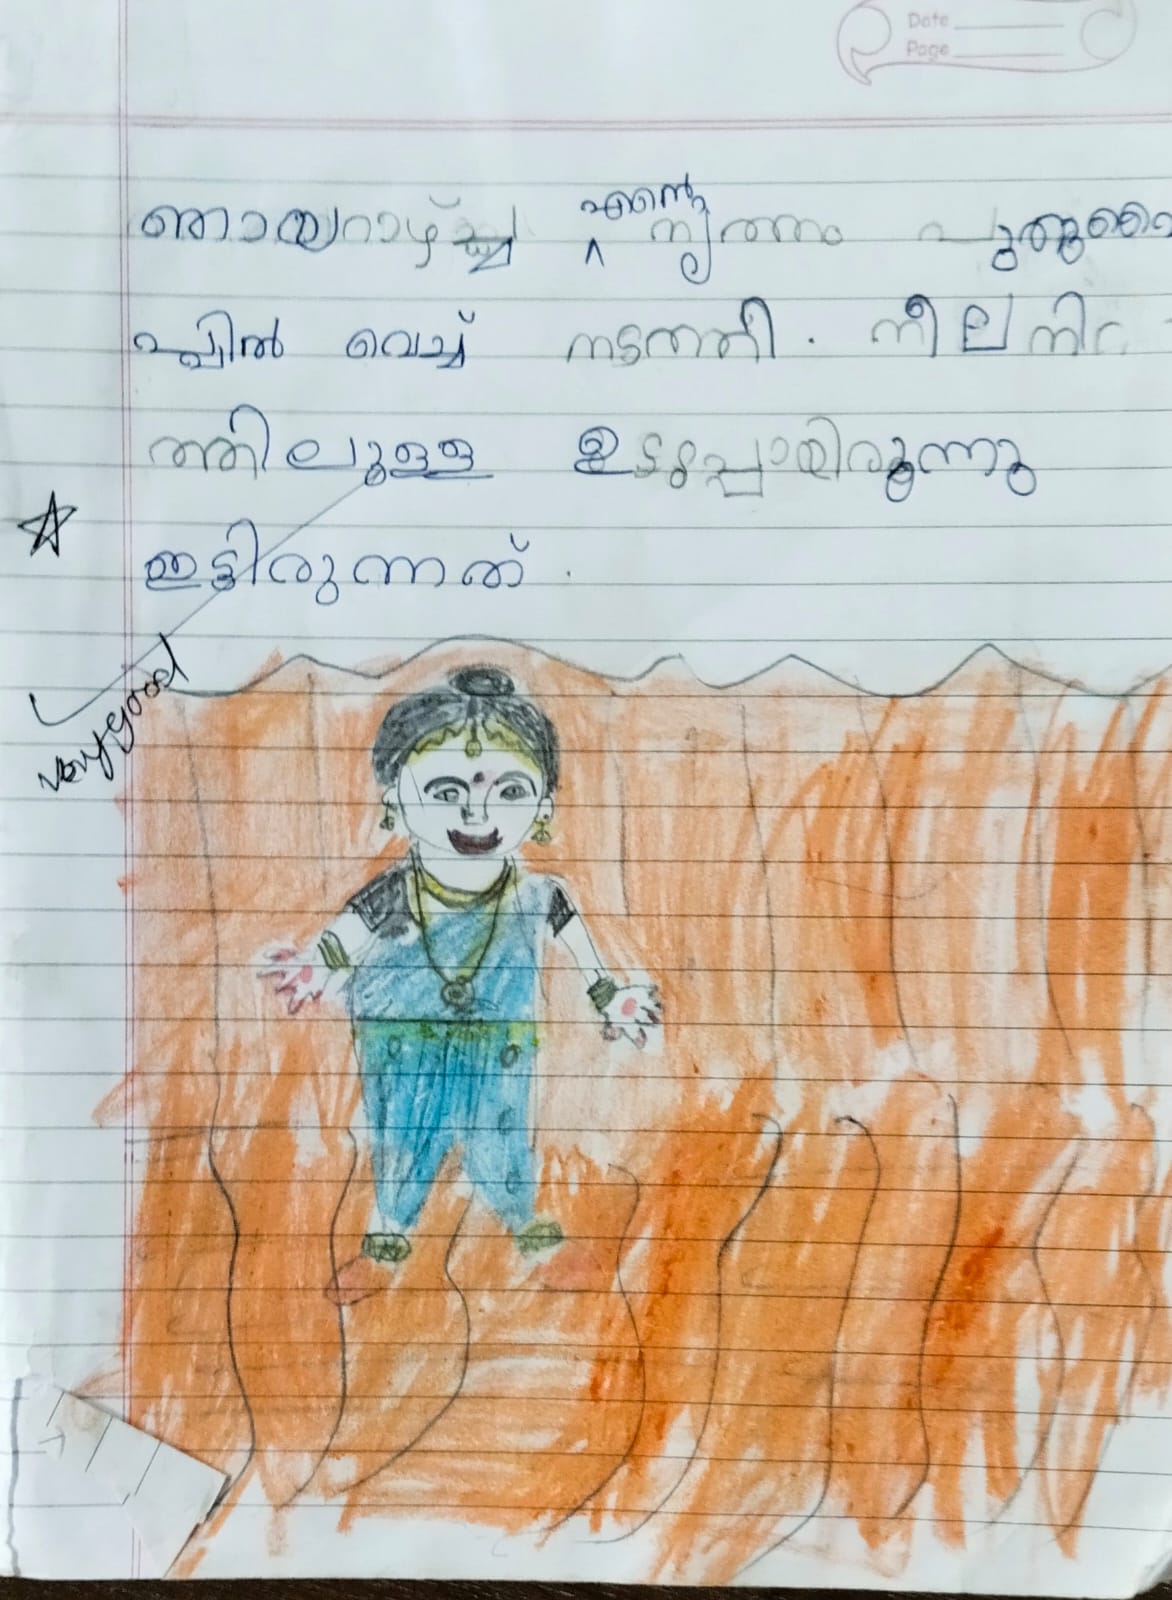 Date
Page
ഞായറാഴ്ച്ച എന്റെ നൃത്തം
പ്പിൽ വെച്ച് നടത്തി. നീല നിറ
ത്തിലുള്ള ഉടുപ്പായിരുന്നു
ഇട്ടിരുന്നത്.
very good